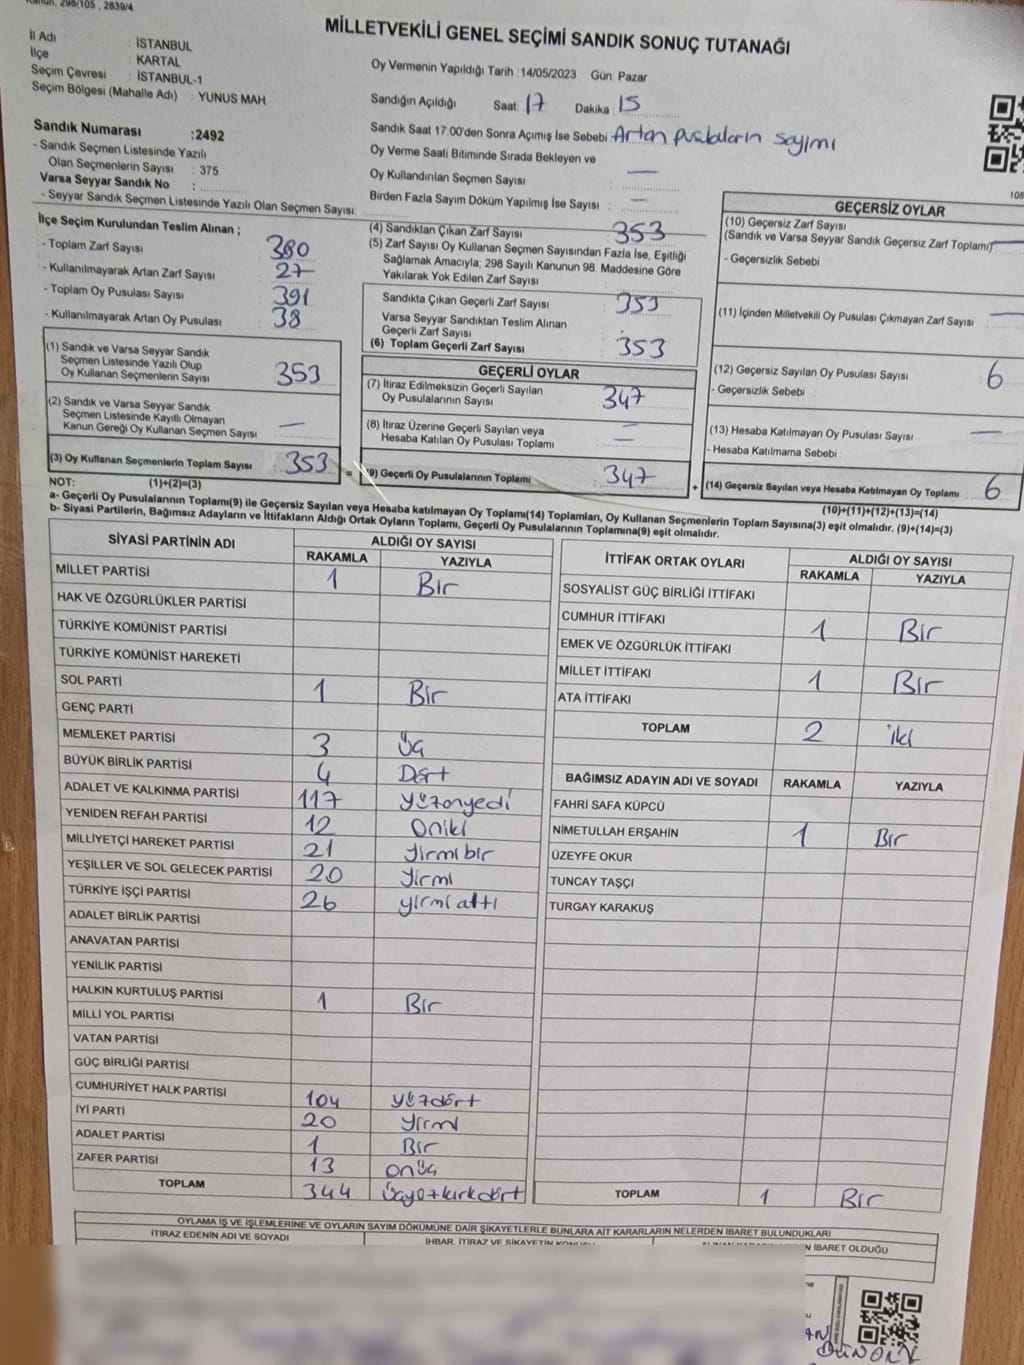 Kanun, 298/105 , 2839/4
MİLLETVEKİLİ GENEL SEÇİMİ SANDIK SONUÇ TUTANAĞI
İl Adı : İSTANBUL
İlçe : KARTAL
Seçim Çevresi : İSTANBUL-1
Seçim Bölgesi (Mahalle Adı) : YUNUS MAH
Oy Vermenin Yapıldığı Tarih :14/05/2023 Gün: Pazar
Sandığın Açıldığı Saat: 17 Dakika : 15
Sandık Saat 17:00'den Sonra Açımış İse Sebebi : Artan pusulaların sayımı
Oy Verme Saati Bitiminde Sırada Bekleyen ve
Oy Kullandırılan Seçmen Sayısı : —
Birden Fazla Sayım Döküm Yapılmış İse Sayısı : —
Sandık Numarası :2492
- Sandık Seçmen Listesinde Yazılı
Olan Seçmenlerin Sayısı : 375
Varsa Seyyar Sandık No :
- Seyyar Sandık Seçmen Listesinde Yazılı Olan Seçmen Sayısı:
İlçe Seçim Kurulundan Teslim Alınan ;
- Toplam Zarf Sayısı : 380
- Kullanılmayarak Artan Zarf Sayısı : 27
- Toplam Oy Pusulası Sayısı : 391
- Kullanılmayarak Artan Oy Pusulası : 38
(1) Sandık ve Varsa Seyyar Sandık
Seçmen Listesinde Yazılı Olup
Oy Kullanan Seçmenlerin Sayısı : 353
(2) Sandık ve Varsa Seyyar Sandık
Seçmen Listesinde Kayıtlı Olmayan
Kanun Gereği Oy Kullanan Seçmen Sayısı : —
(3) Oy Kullanan Seçmenlerin Toplam Sayısı : 353
(4) Sandıktan Çıkan Zarf Sayısı : 353
(5) Zarf Sayısı Oy Kullanan Seçmen Sayısından Fazla İse, Eşitliği
Sağlamak Amacıyla, 298 Sayılı Kanunun 98. Maddesine Göre
Yakılarak Yok Edilen Zarf Sayısı :
Sandıkta Çıkan Geçerli Zarf Sayısı : 353
Varsa Seyyar Sandıktan Teslim Alınan
Geçerli Zarf Sayısı :
(6) Toplam Geçerli Zarf Sayısı : 353
GEÇERLİ OYLAR
(7) İtiraz Edilmeksizin Geçerli Sayılan
Oy Pusulalarının Sayısı : 347
(8) İtiraz Üzerine Geçerli Sayılan veya
Hesaba Katılan Oy Pusulası Toplamı : —
= (9) Geçerli Oy Pusulalarının Toplamı : 347
GEÇERSİZ OYLAR
(10) Geçersiz Zarf Sayısı
(Sandık ve Varsa Seyyar Sandık Geçersiz Zarf Toplamı): —
- Geçersizlik Sebebi :
(11) İçinden Milletvekili Oy Pusulası Çıkmayan Zarf Sayısı : —
(12) Geçersiz Sayılan Oy Pusulası Sayısı : 6
- Geçersizlik Sebebi :
(13) Hesaba Katılmayan Oy Pusulası Sayısı : —
- Hesaba Katılmama Sebebi :
+ (14) Geçersiz Sayılan veya Hesaba Katılmayan Oy Toplamı : 6
NOT: (1)+(2)=(3)
(10)+(11)+(12)+(13)=(14)
a- Geçerli Oy Pusulalarının Toplamı(9) ile Geçersiz Sayılan veya Hesaba katılmayan Oy Toplamı(14) Toplamları, Oy Kullanan Seçmenlerin Toplam Sayısına(3) eşit olmalıdır. (9)+(14)=(3)
b- Siyasi Partilerin, Bağımsız Adayların ve İttifakların Aldığı Ortak Oyların Toplamı, Geçerli Oy Pusulalarının Toplamına(9) eşit olmalıdır.
SİYASİ PARTİNİN ADI ALDIĞI OY SAYISI
RAKAMLA YAZIYLA
MİLLET PARTİSİ 1 Bir
HAK VE ÖZGÜRLÜKLER PARTİSİ
TÜRKİYE KOMÜNİST PARTİSİ
TÜRKİYE KOMÜNİST HAREKETİ
SOL PARTİ 1 Bir
GENÇ PARTİ
MEMLEKET PARTİSİ 3 Üç
BÜYÜK BİRLİK PARTİSİ 4 Dört
ADALET VE KALKINMA PARTİSİ 117 yüzonyedi
YENİDEN REFAH PARTİSİ 12 Oniki
MİLLİYETÇİ HAREKET PARTİSİ 21 yirmibir
YEŞİLLER VE SOL GELECEK PARTİSİ 20 yirmi
TÜRKİYE İŞÇİ PARTİSİ 26 yirmi altı
ADALET BİRLİK PARTİSİ
ANAVATAN PARTİSİ
YENİLİK PARTİSİ
HALKIN KURTULUŞ PARTİSİ 1 Bir
MİLLİ YOL PARTİSİ
VATAN PARTİSİ
GÜÇ BİRLİĞİ PARTİSİ
CUMHURİYET HALK PARTİSİ 104 yüzdört
İYİ PARTİ 20 yirmi
ADALET PARTİSİ 1 Bir
ZAFER PARTİSİ 13 onüç
TOPLAM 344 üçyüzkırkdört
İTTİFAK ORTAK OYLARI ALDIĞI OY SAYISI
RAKAMLA YAZIYLA
SOSYALİST GÜÇ BİRLİĞİ İTTİFAKI
CUMHUR İTTİFAKI 1 Bir
EMEK VE ÖZGÜRLÜK İTTİFAKI
MİLLET İTTİFAKI 1 Bir
ATA İTTİFAKI
TOPLAM 2 iki
BAĞIMSIZ ADAYIN ADI VE SOYADI RAKAMLA YAZIYLA
FAHRİ SAFA KÜPCÜ
NİMETULLAH ERŞAHİN 1 Bir
ÜZEYFE OKUR
TUNCAY TAŞÇI
TURGAY KARAKUŞ
TOPLAM 1 Bir
OYLAMA İŞ VE İŞLEMLERİNE VE OYLARIN SAYIM DÖKÜMÜNE DAİR ŞİKAYETLERLE BUNLARA AİT KARARLARIN NELERDEN İBARET BULUNDUKLARI
İTİRAZ EDENİN ADI VE SOYADI İHBAR, İTİRAZ VE ŞİKAYETİN KONUSU İBARET OLDUĞU